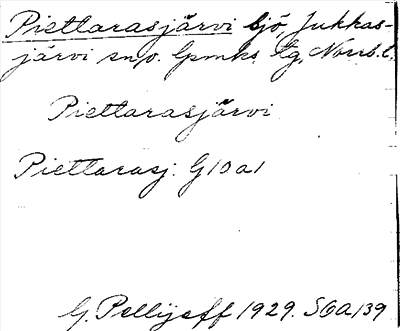 Piettarasjärvi sjö, Jukkas-
järvi sn/o. lpmks tg, Norrb.l.
Piettarasjärvi
Piettarasj. G10a1
G. Pellijeff 1929. SOA139